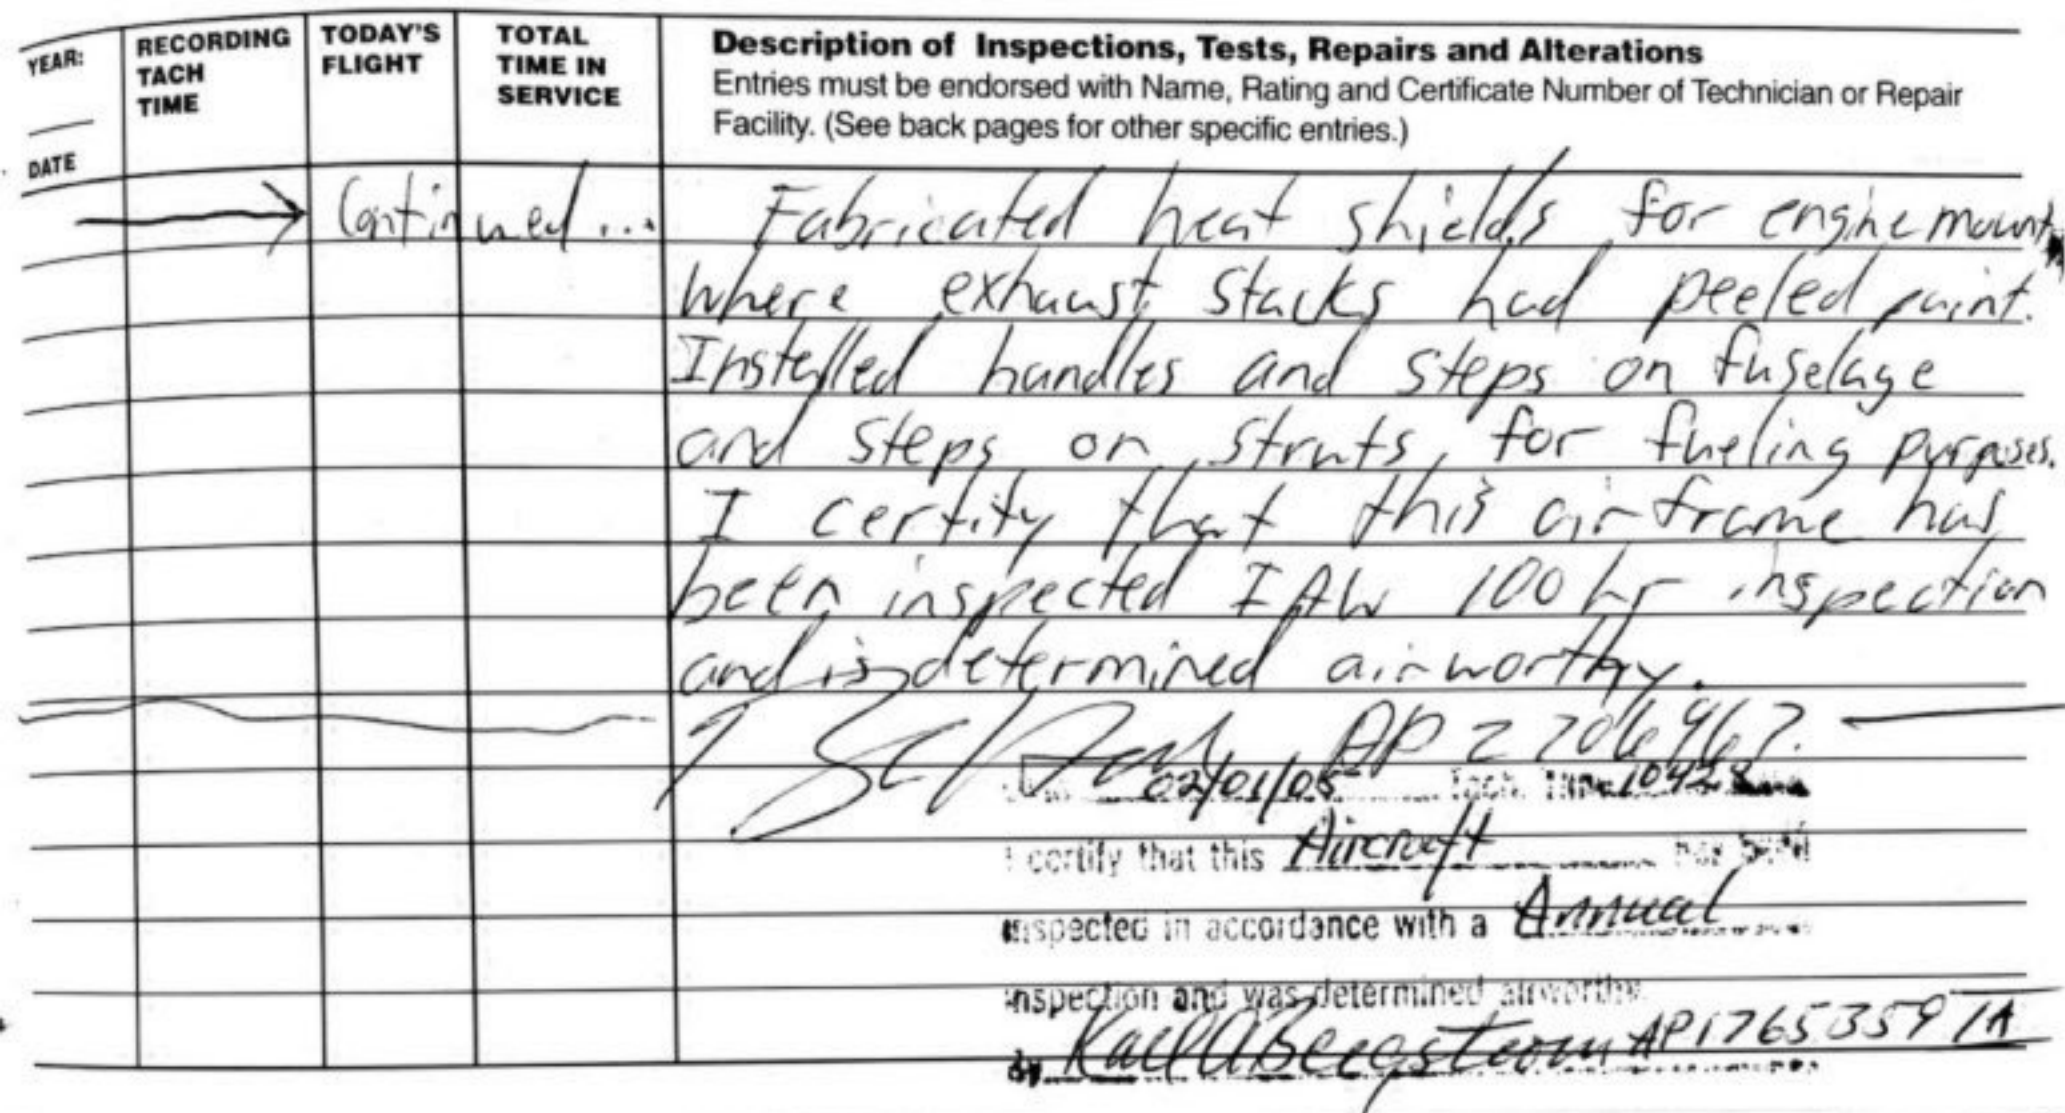 YEAR:
DATE
RECORDING
TACH
TIME
TODAY'S
FLIGHT
TOTAL
TIME IN
SERVICE
Description of Inspections, Tests, Repairs and Alterations
Entries must be endorsed with Name, Rating and Certificate Number of Technician or Repair
Facility. (See back pages for other specific entries.)
Continued... Fabricated heat shields for engine mount
where exhaust stacks had peeled paint.
Installed handles and steps on fuselage
and steps on struts, for fueling purposes.
I certify that this airframe has
been inspected IAW 100 hr inspection
and is determined airworthy.
AP 2706967.
02/01/05 Tach Time 1042.8
I certify that this Aircraft has been
inspected in accordance with a Annual
inspection and was determined airworthy.
By Karl A Bergstrom AP1765359 IA